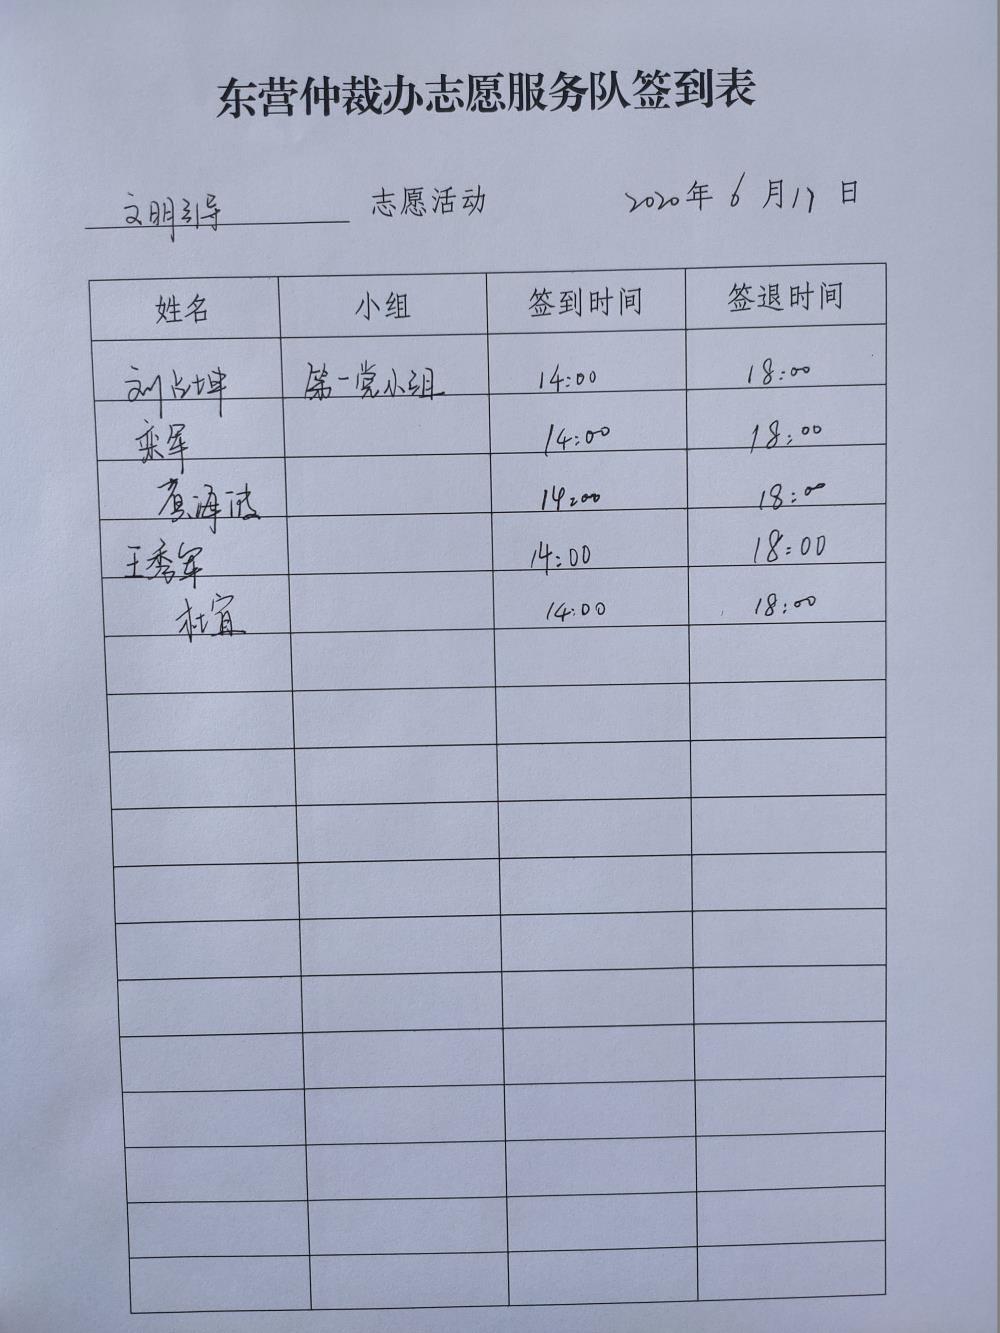 东营仲裁办志愿服务队签到表
文明引导 志愿活动 2020年6月17日
姓名 小组 签到时间 签退时间
刘占坤 第一党小组 14:00 18:00
栾军 14:00 18:00
14:00 18:00
王秀军 14:00 18:00
杜宜 14:00 18:00